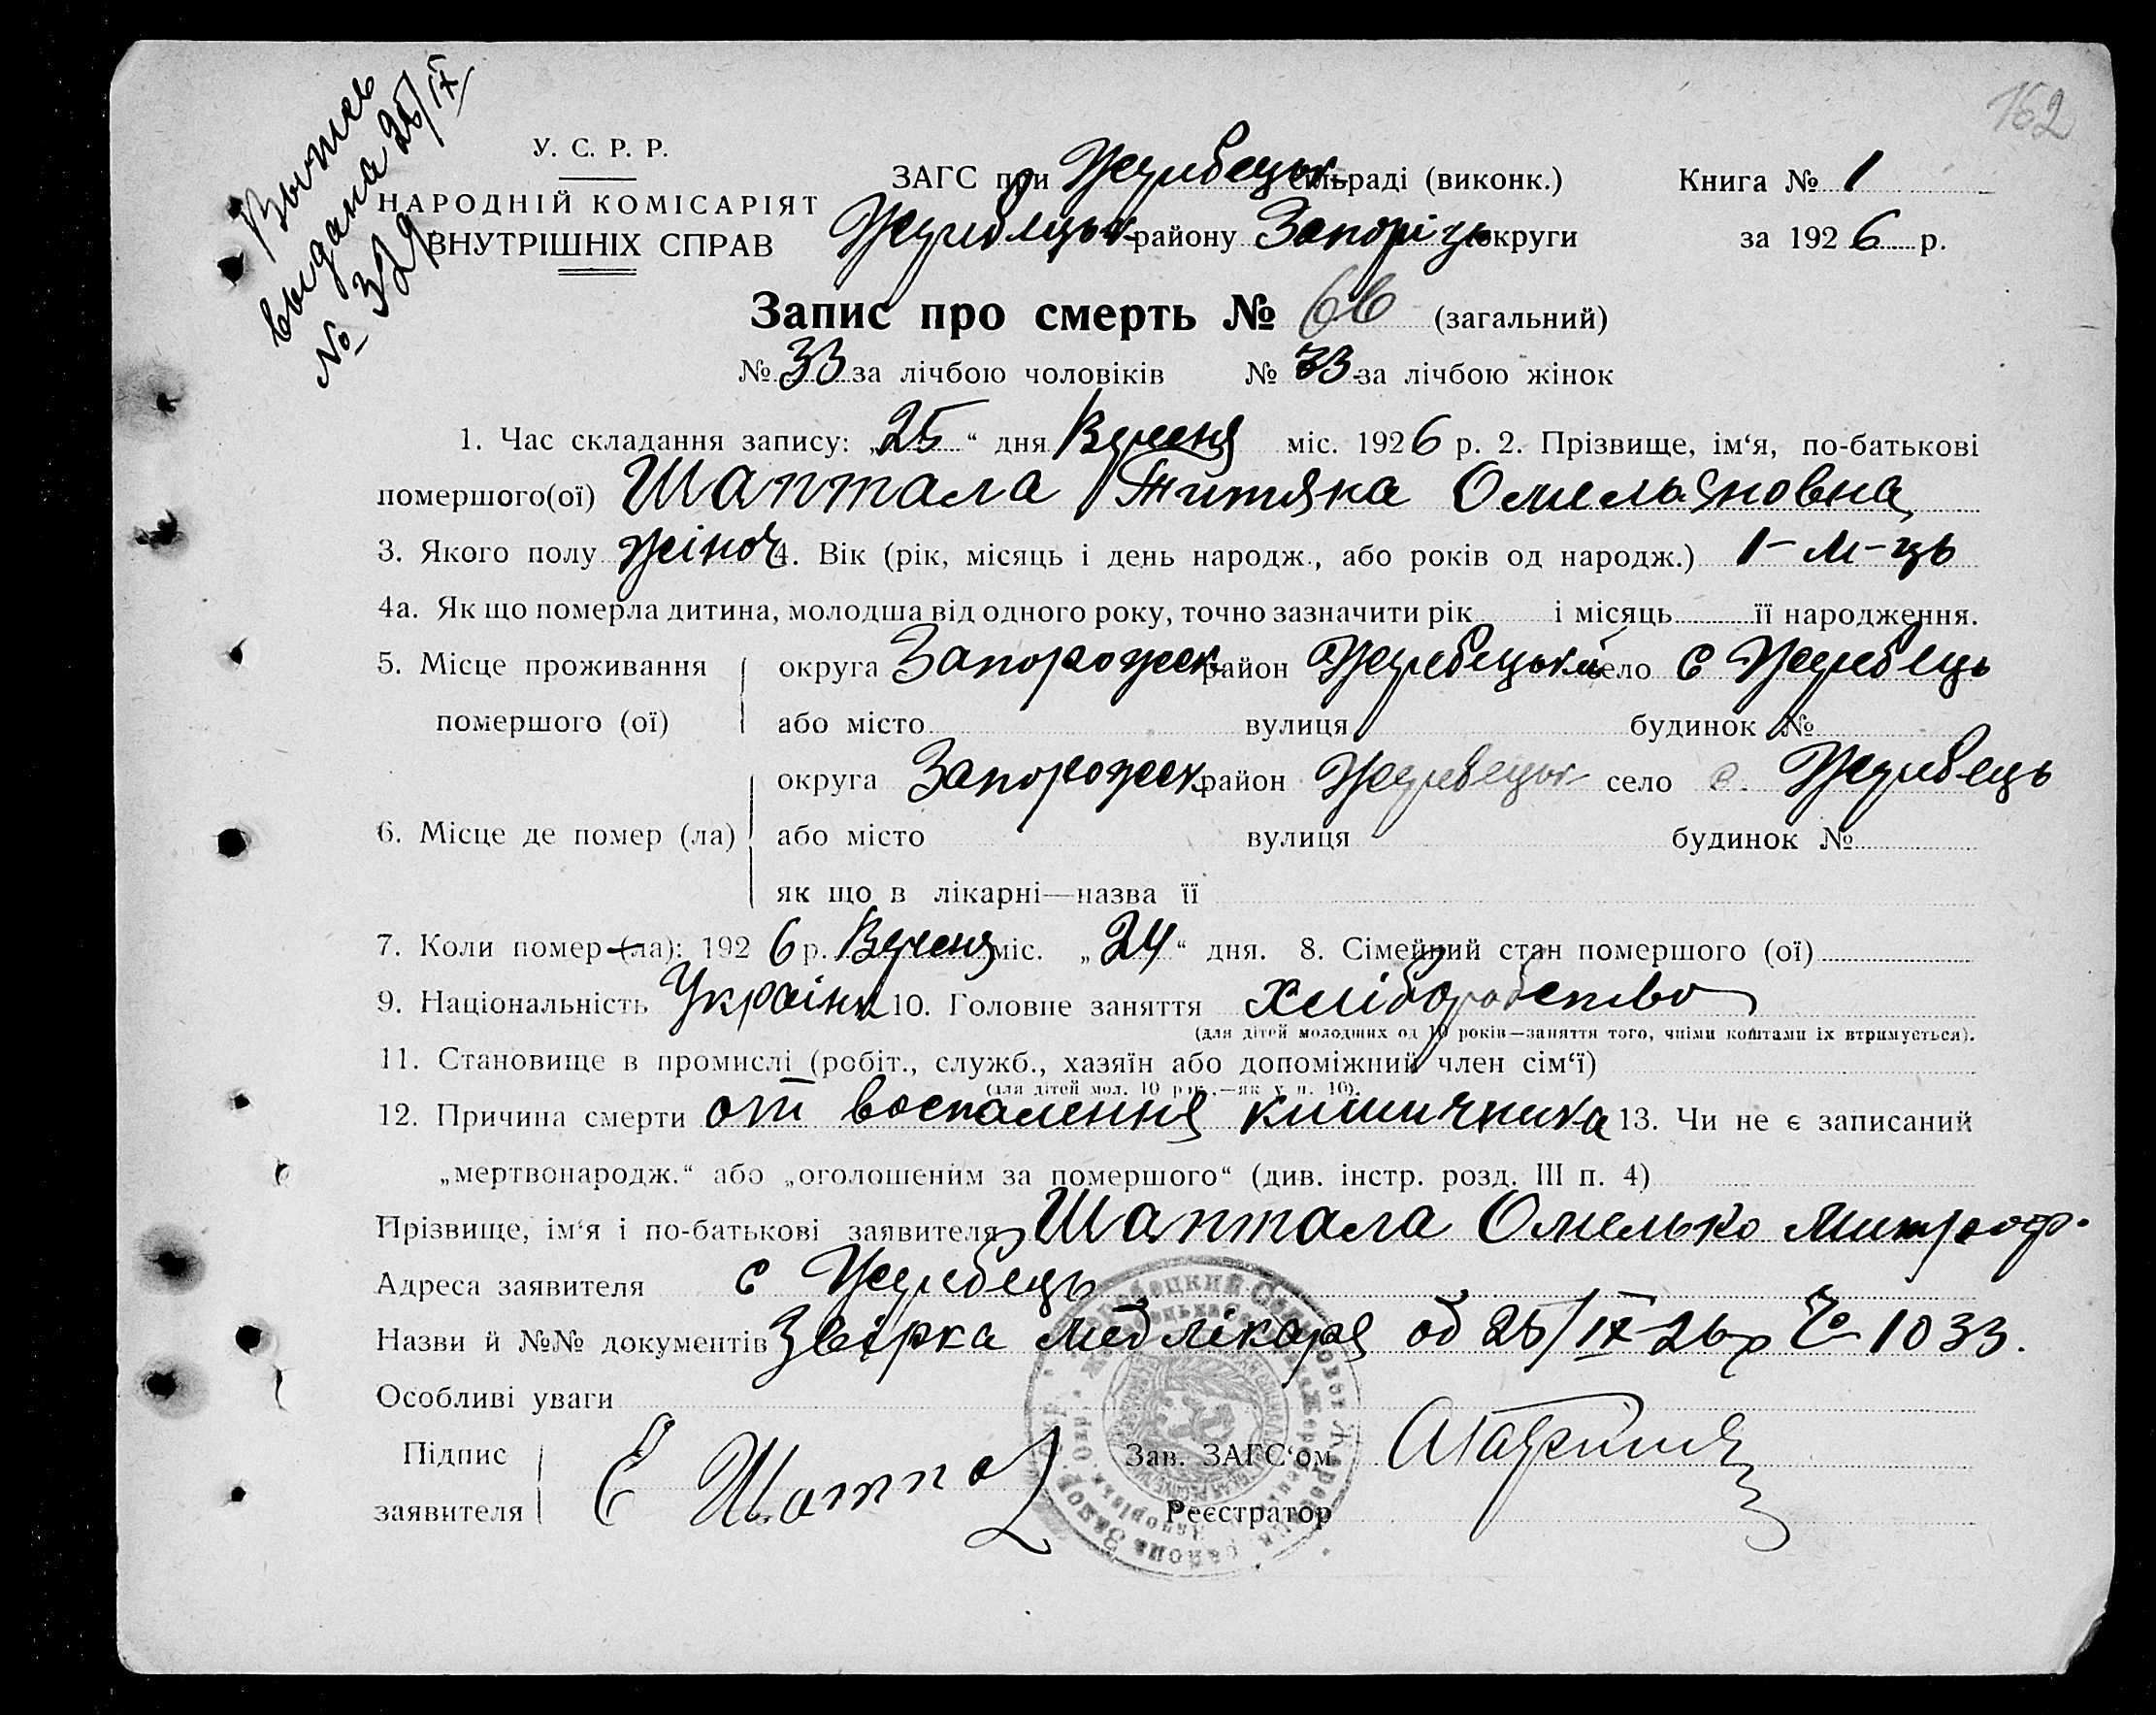 162
Выпись
выдана 25/IX
№ 329
У. С. Р. Р.
НАРОДНІЙ КОМІСАРІЯТ
ВНУТРІШНІХ СПРАВ
ЗАГС при Жеребецьк. сільраді (виконк.)
Жеребецьк району Запорізьк округи
Книга № 1
за 1926 р.
Запис про смерть № 66 (загальний)
№ 33 за лічбою чоловіків № 33 за лічбою жінок
1. Час складання запису: „25“ дня Вересня міс. 1926 р. 2. Прізвище, ім‘я, по-батькові
помершого(ої) Шаптала Омельяновна
3. Якого полу жіноч 4. Вік (рік, місяць і день народж., або років од народж.) 1-м-ць
4а. Як що померла дитина, молодша від одного року, точно зазначити рік і місяць її народження.
5. Місце проживання помершого (ої) округа Запорожск район Жеребецький село с Жеребець
або місто вулиця будинок №
6. Місце де помер (ла) округа Запорожск район Жеребецьк село с. Жеребець
або місто вулиця будинок №
як що в лікарні—назва її
7. Коли помер (ла): 1926 р. Вересня міс. „24“ дня. 8. Сімейний стан помершого (ої)
9. Національність Україн 10. Головне заняття Хліборобство
(для дітей молодших од 10 років—заняття того, чиїми коштами їх втримується).
11. Становище в промислі (робіт., служб., хазяїн або допоміжний член сім‘ї)
(для дітей мол. 10 рок.—як у п. 10).
12. Причина смерти от воспалення кишичника 13. Чи не є записаний
„мертвонародж.“ або „оголошеним за помершого“ (див. інстр. розд. III п. 4)
Прізвище, ім‘я і по-батькові заявителя Шаптала Омелько Митроф.
Адреса заявителя с Жеребець
Назви й №№ документів Звірка мед лікаря од 25/IX-26р № 1033.
Особливі уваги
Підпис заявителя Е Шаптал
Зав. ЗАГС‘ом
Реєстратор